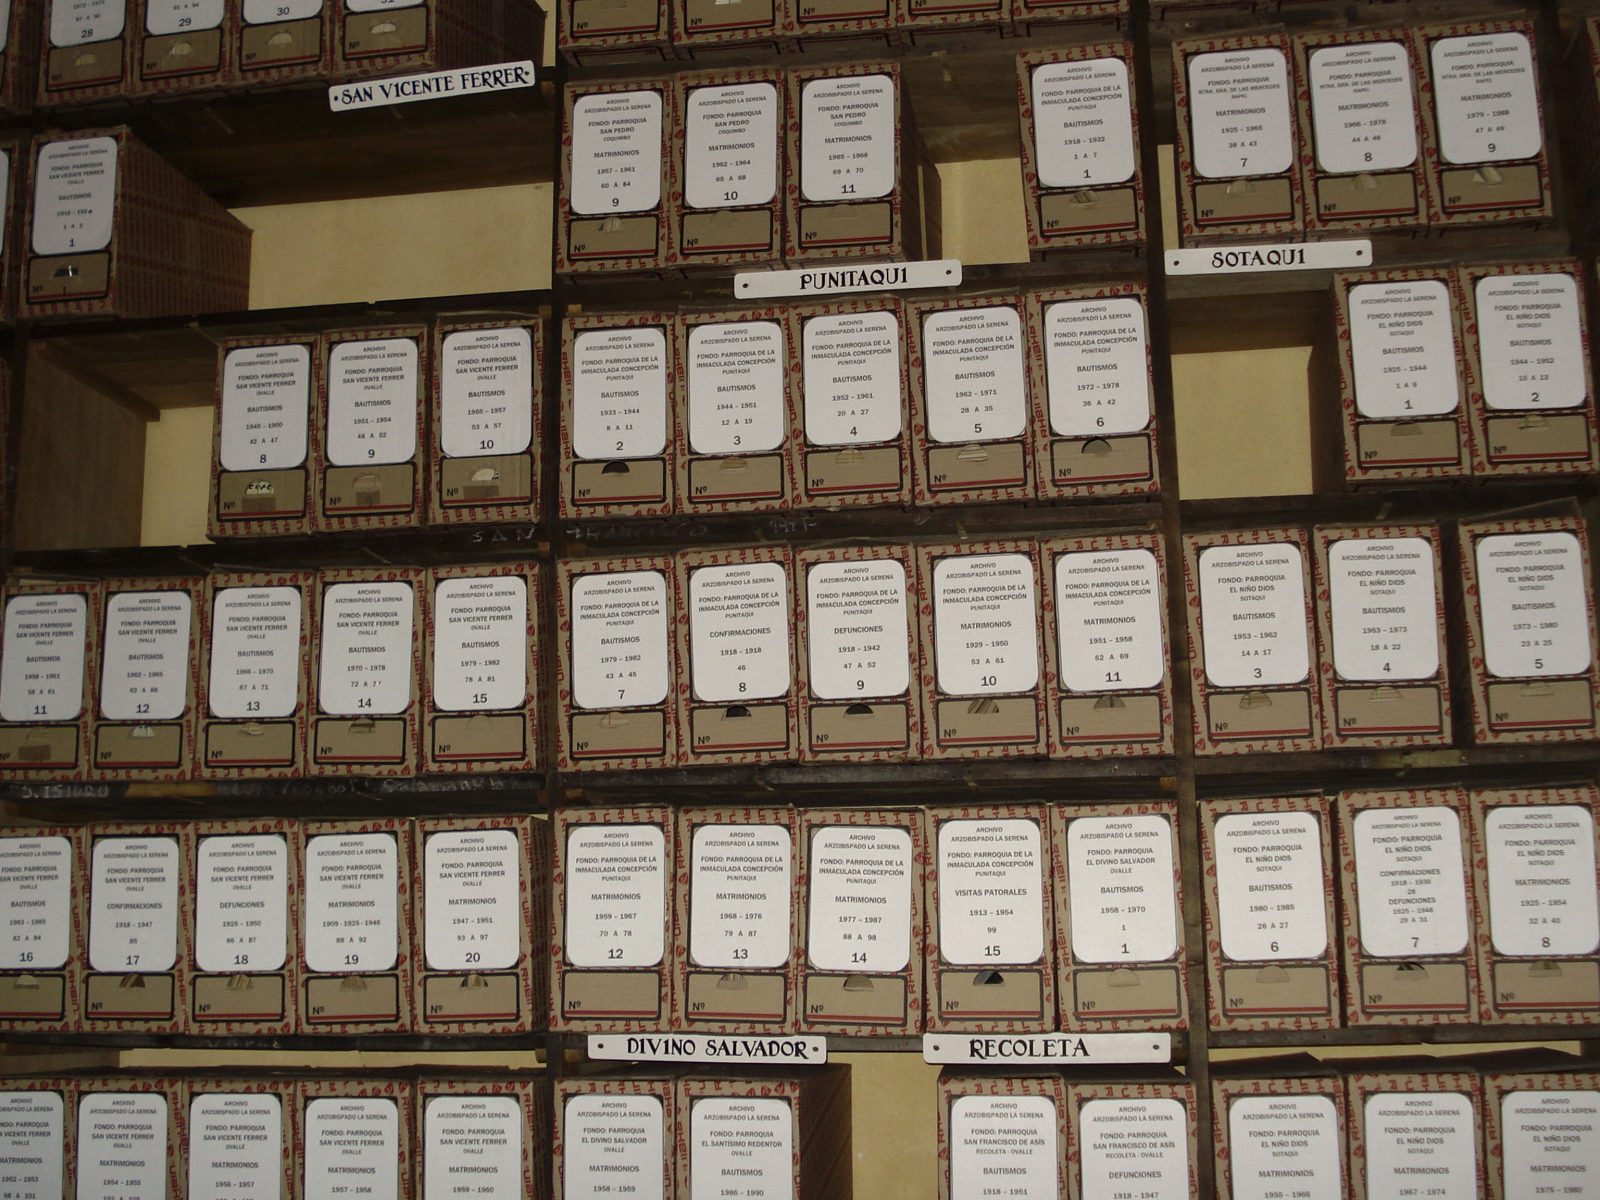 28
29
30
31
Nº
Nº
Nº
Nº
SAN VICENTE FERRER
ARCHIVO
ARZOBISPADO LA SERENA
FONDO: PARROQUIA
SAN VICENTE FERRER
OVALLE
BAUTISMOS
1
Nº
ARCHIVO
ARZOBISPADO LA SERENA
FONDO: PARROQUIA
SAN PEDRO
COQUIMBO
MATRIMONIOS
1957 - 1961
60 A 64
9
Nº
ARCHIVO
ARZOBISPADO LA SERENA
FONDO: PARROQUIA
SAN PEDRO
COQUIMBO
MATRIMONIOS
1962 - 1964
65 A 68
10
Nº
ARCHIVO
ARZOBISPADO LA SERENA
FONDO: PARROQUIA
SAN PEDRO
COQUIMBO
MATRIMONIOS
1965 - 1966
69 A 70
11
Nº
ARCHIVO
ARZOBISPADO LA SERENA
FONDO: PARROQUIA DE LA
INMACULADA CONCEPCIÓN
PUNITAQUI
BAUTISMOS
1918 - 1932
1 A 7
1
Nº
ARCHIVO
ARZOBISPADO LA SERENA
FONDO: PARROQUIA
NTRA. SRA. DE LAS MERCEDES
RAPEL
MATRIMONIOS
1925 - 1965
38 A 43
7
Nº
ARCHIVO
ARZOBISPADO LA SERENA
FONDO: PARROQUIA
NTRA. SRA. DE LAS MERCEDES
RAPEL
MATRIMONIOS
1966 - 1978
44 A 46
8
Nº
ARCHIVO
ARZOBISPADO LA SERENA
FONDO: PARROQUIA
NTRA. SRA. DE LAS MERCEDES
RAPEL
MATRIMONIOS
1979 - 1988
47 A 49
9
Nº
PUNITAQUI
SOTAQUI
ARCHIVO
ARZOBISPADO LA SERENA
FONDO: PARROQUIA
SAN VICENTE FERRER
OVALLE
BAUTISMOS
1945 - 1950
43 A 47
8
Nº
ARCHIVO
ARZOBISPADO LA SERENA
FONDO: PARROQUIA
SAN VICENTE FERRER
OVALLE
BAUTISMOS
1951 - 1954
48 A 52
9
Nº
ARCHIVO
ARZOBISPADO LA SERENA
FONDO: PARROQUIA
SAN VICENTE FERRER
OVALLE
BAUTISMOS
1955 - 1957
53 A 57
10
Nº
ARCHIVO
ARZOBISPADO LA SERENA
FONDO: PARROQUIA DE LA
INMACULADA CONCEPCIÓN
PUNITAQUI
BAUTISMOS
1933 - 1944
8 A 11
2
Nº
ARCHIVO
ARZOBISPADO LA SERENA
FONDO: PARROQUIA DE LA
INMACULADA CONCEPCIÓN
PUNITAQUI
BAUTISMOS
1944 - 1951
12 A 19
3
Nº
ARCHIVO
ARZOBISPADO LA SERENA
FONDO: PARROQUIA DE LA
INMACULADA CONCEPCIÓN
PUNITAQUI
BAUTISMOS
1952 - 1961
20 A 27
4
Nº
ARCHIVO
ARZOBISPADO LA SERENA
FONDO: PARROQUIA DE LA
INMACULADA CONCEPCIÓN
PUNITAQUI
BAUTISMOS
1962 - 1971
28 A 35
5
Nº
ARCHIVO
ARZOBISPADO LA SERENA
FONDO: PARROQUIA DE LA
INMACULADA CONCEPCIÓN
PUNITAQUI
BAUTISMOS
1972 - 1978
36 A 42
6
Nº
ARCHIVO
ARZOBISPADO LA SERENA
FONDO: PARROQUIA
EL NIÑO DIOS
SOTAQUI
BAUTISMOS
1925 - 1944
1 A 9
1
Nº
ARCHIVO
ARZOBISPADO LA SERENA
FONDO: PARROQUIA
EL NIÑO DIOS
SOTAQUI
BAUTISMOS
1944 - 1952
10 A 13
2
Nº
SAN
ARCHIVO
ARZOBISPADO LA SERENA
FONDO: PARROQUIA
SAN VICENTE FERRER
OVALLE
BAUTISMOS
58 A 61
11
ARCHIVO
ARZOBISPADO LA SERENA
FONDO: PARROQUIA
SAN VICENTE FERRER
OVALLE
BAUTISMOS
1962 - 1965
62 A 66
12
Nº
ARCHIVO
ARZOBISPADO LA SERENA
FONDO: PARROQUIA
SAN VICENTE FERRER
OVALLE
BAUTISMOS
1966 - 1970
67 A 71
13
Nº
ARCHIVO
ARZOBISPADO LA SERENA
FONDO: PARROQUIA
SAN VICENTE FERRER
OVALLE
BAUTISMOS
1970 - 1978
72 A
14
Nº
ARCHIVO
ARZOBISPADO LA SERENA
FONDO: PARROQUIA
SAN VICENTE FERRER
OVALLE
BAUTISMOS
1979 - 1982
78 A 81
15
Nº
ARCHIVO
ARZOBISPADO LA SERENA
FONDO: PARROQUIA DE LA
INMACULADA CONCEPCIÓN
PUNITAQUI
BAUTISMOS
1979 - 1982
43 A 45
7
Nº
ARCHIVO
ARZOBISPADO LA SERENA
FONDO: PARROQUIA DE LA
INMACULADA CONCEPCIÓN
PUNITAQUI
CONFIRMACIONES
1918 - 1918
46
8
Nº
ARCHIVO
ARZOBISPADO LA SERENA
FONDO: PARROQUIA DE LA
INMACULADA CONCEPCIÓN
PUNITAQUI
DEFUNCIONES
1918 - 1942
47 A 52
9
Nº
ARCHIVO
ARZOBISPADO LA SERENA
FONDO: PARROQUIA DE LA
INMACULADA CONCEPCIÓN
PUNITAQUI
MATRIMONIOS
1929 - 1950
53 A 61
10
Nº
ARCHIVO
ARZOBISPADO LA SERENA
FONDO: PARROQUIA DE LA
INMACULADA CONCEPCIÓN
PUNITAQUI
MATRIMONIOS
1951 - 1958
62 A 69
11
Nº
ARCHIVO
ARZOBISPADO LA SERENA
FONDO: PARROQUIA
EL NIÑO DIOS
SOTAQUI
BAUTISMOS
1953 - 1962
14 A 17
3
Nº
ARCHIVO
ARZOBISPADO LA SERENA
FONDO: PARROQUIA
EL NIÑO DIOS
SOTAQUI
BAUTISMOS
1963 - 1973
18 A 22
4
Nº
ARCHIVO
ARZOBISPADO LA SERENA
FONDO: PARROQUIA
EL NIÑO DIOS
SOTAQUI
BAUTISMOS
1973 - 1980
23 A 25
5
Nº
S. ISIDRO
ARCHIVO
ARZOBISPADO LA SERENA
FONDO: PARROQUIA
SAN VICENTE FERRER
OVALLE
BAUTISMOS
1983 - 1985
82 A 84
16
ARCHIVO
ARZOBISPADO LA SERENA
FONDO: PARROQUIA
SAN VICENTE FERRER
OVALLE
CONFIRMACIONES
1918 - 1947
85
17
Nº
ARCHIVO
ARZOBISPADO LA SERENA
FONDO: PARROQUIA
SAN VICENTE FERRER
OVALLE
DEFUNCIONES
1925 - 1950
86 A 87
18
Nº
ARCHIVO
ARZOBISPADO LA SERENA
FONDO: PARROQUIA
SAN VICENTE FERRER
OVALLE
MATRIMONIOS
1909 - 1925 - 1946
88 A 92
19
Nº
ARCHIVO
ARZOBISPADO LA SERENA
FONDO: PARROQUIA
SAN VICENTE FERRER
OVALLE
MATRIMONIOS
1947 - 1951
93 A 97
20
Nº
ARCHIVO
ARZOBISPADO LA SERENA
FONDO: PARROQUIA DE LA
INMACULADA CONCEPCIÓN
PUNITAQUI
MATRIMONIOS
1959 - 1967
70 A 78
12
Nº
ARCHIVO
ARZOBISPADO LA SERENA
FONDO: PARROQUIA DE LA
INMACULADA CONCEPCIÓN
PUNITAQUI
MATRIMONIOS
1968 - 1976
79 A 87
13
Nº
ARCHIVO
ARZOBISPADO LA SERENA
FONDO: PARROQUIA DE LA
INMACULADA CONCEPCIÓN
PUNITAQUI
MATRIMONIOS
1977 - 1987
88 A 98
14
Nº
ARCHIVO
ARZOBISPADO LA SERENA
FONDO: PARROQUIA DE LA
INMACULADA CONCEPCIÓN
PUNITAQUI
VISITAS PATORALES
1913 - 1954
99
15
Nº
ARCHIVO
ARZOBISPADO LA SERENA
FONDO: PARROQUIA
EL DIVINO SALVADOR
OVALLE
BAUTISMOS
1958 - 1970
1
1
Nº
ARCHIVO
ARZOBISPADO LA SERENA
FONDO: PARROQUIA
EL NIÑO DIOS
SOTAQUI
BAUTISMOS
1980 - 1985
26 A 27
6
Nº
ARCHIVO
ARZOBISPADO LA SERENA
FONDO: PARROQUIA
EL NIÑO DIOS
SOTAQUI
CONFIRMACIONES
1918 - 1936
28
DEFUNCIONES
1925 - 1948
29 A 31
7
Nº
ARCHIVO
ARZOBISPADO LA SERENA
FONDO: PARROQUIA
EL NIÑO DIOS
SOTAQUI
MATRIMONIOS
1925 - 1954
32 A 40
8
Nº
DIVINO SALVADOR
RECOLETA
ARCHIVO
ARZOBISPADO LA SERENA
FONDO: PARROQUIA
SAN VICENTE FERRER
OVALLE
MATRIMONIOS
1952 - 1953
98 A 101
ARCHIVO
ARZOBISPADO LA SERENA
FONDO: PARROQUIA
SAN VICENTE FERRER
OVALLE
MATRIMONIOS
1954 - 1955
ARCHIVO
ARZOBISPADO LA SERENA
FONDO: PARROQUIA
SAN VICENTE FERRER
OVALLE
MATRIMONIOS
1956 - 1957
ARCHIVO
ARZOBISPADO LA SERENA
FONDO: PARROQUIA
SAN VICENTE FERRER
OVALLE
MATRIMONIOS
1957 - 1958
ARCHIVO
ARZOBISPADO LA SERENA
FONDO: PARROQUIA
SAN VICENTE FERRER
OVALLE
MATRIMONIOS
1959 - 1960
ARCHIVO
ARZOBISPADO LA SERENA
FONDO: PARROQUIA
EL DIVINO SALVADOR
OVALLE
MATRIMONIOS
1958 - 1959
ARCHIVO
ARZOBISPADO LA SERENA
FONDO: PARROQUIA
EL SANTISIMO REDENTOR
OVALLE
BAUTISMOS
1986 - 1990
ARCHIVO
ARZOBISPADO LA SERENA
FONDO: PARROQUIA
SAN FRANCISCO DE ASÍS
RECOLETA - OVALLE
BAUTISMOS
1918 - 1951
ARCHIVO
ARZOBISPADO LA SERENA
FONDO: PARROQUIA
SAN FRANCISCO DE ASÍS
RECOLETA - OVALLE
DEFUNCIONES
1918 - 1947
ARCHIVO
ARZOBISPADO LA SERENA
FONDO: PARROQUIA
EL NIÑO DIOS
SOTAQUI
MATRIMONIOS
1955 - 1966
ARCHIVO
ARZOBISPADO LA SERENA
FONDO: PARROQUIA
EL NIÑO DIOS
SOTAQUI
MATRIMONIOS
1967 - 1974
ARCHIVO
ARZOBISPADO LA SERENA
FONDO: PARROQUIA
EL NIÑO DIOS
SOTAQUI
MATRIMONIOS
1975 - 1980